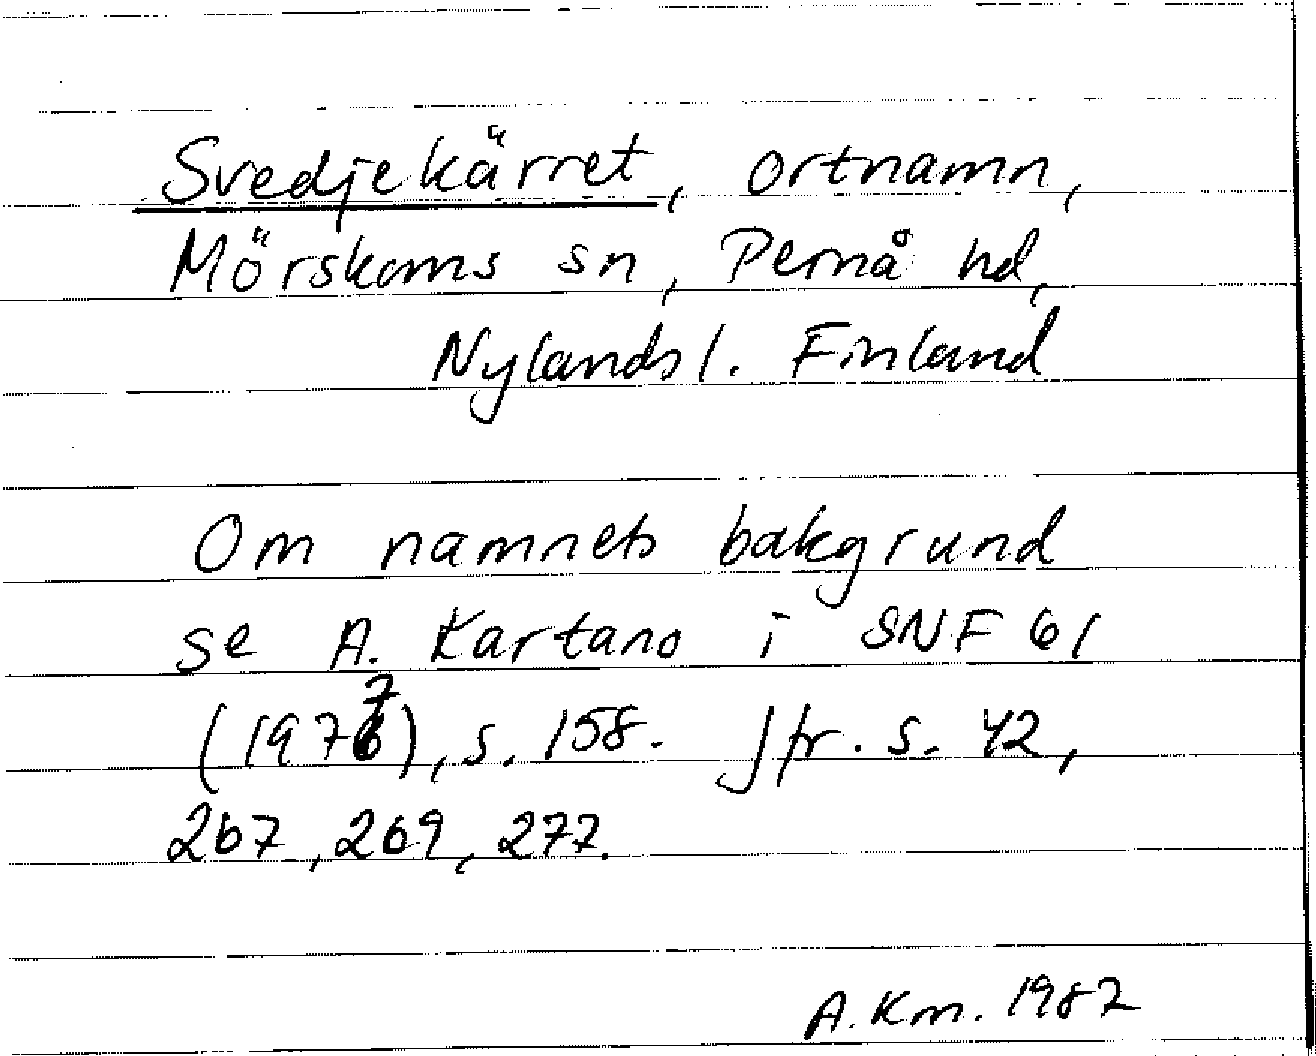 Svedjekärret, ortnamn,
Mörskoms sn, Pernå hd,
Nylands l. Finland
Om namnets bakgrund
se A. Kartano i SNF 61
(1977), s. 158. Jfr. s. 42,
267, 269, 277.
A. Km. 1987